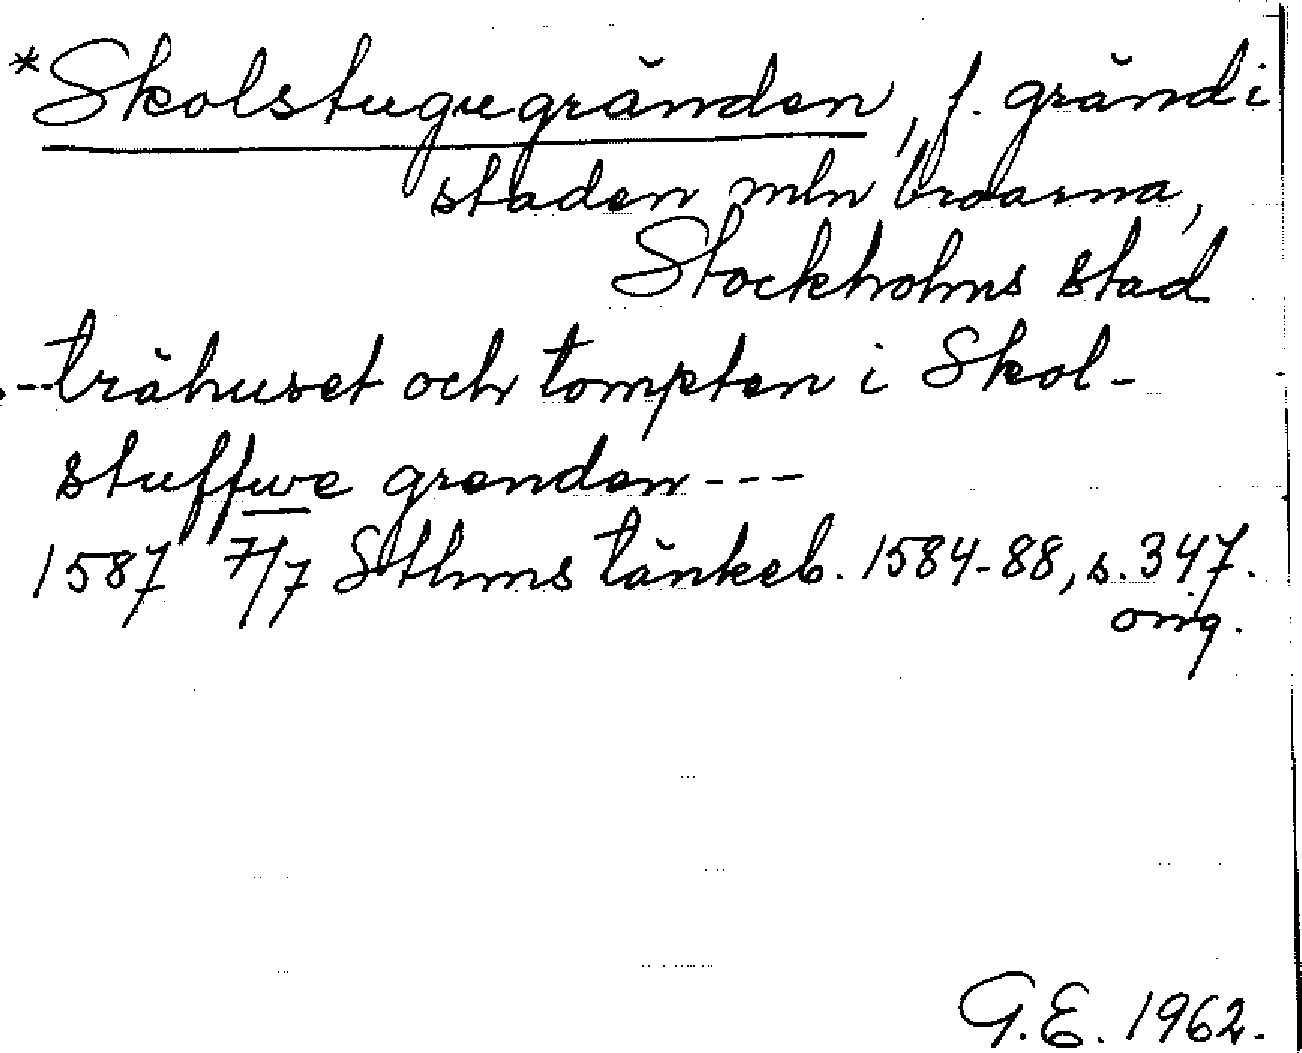 *Skolstugugränden, f. gränd i
staden mln broarna,
Stockholms stad
--trähuset och tompten i Skol-
stuffwe grenden---
1587 7/7 Sthms tänkeb. 1584-88, s. 347.
orig.
G.E. 1962.